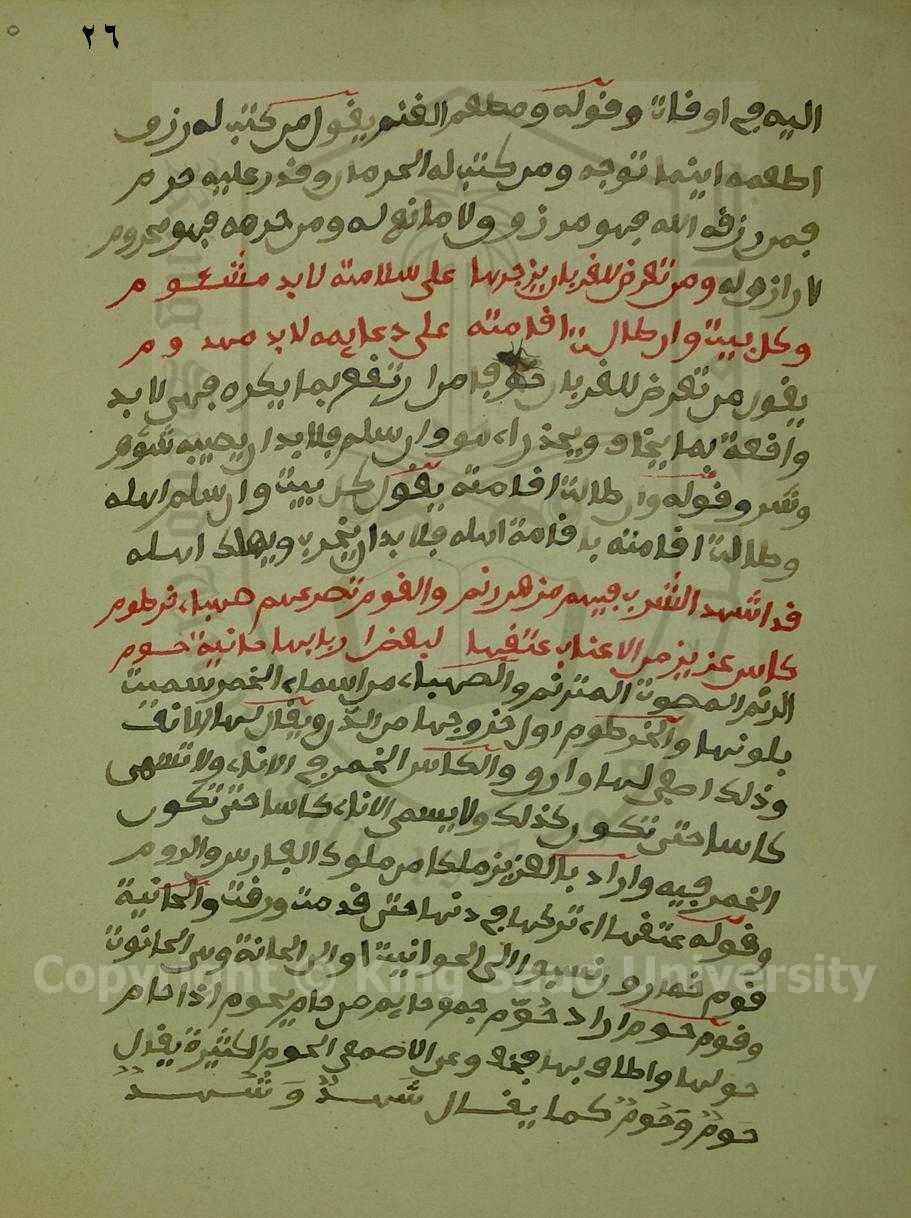 ٢٦
اليه في اوقات وقوله ومطعم الغنم يقول من كتب له رزق
اطعمه اينما توجه ومن كتب له الحرمان وقدر عليه حرم
فمن رزقه الله فهو مرزوق ولا مانع له ومن حرمه فهو محروم
لا رازق له ومن تعرض للغربان يزجرها على سلامته لا بد مشئوم
وكل بيت وان طالت اقامته على دعايمه لا بد مهدوم
يقول من تعرض للغربان ارتفع بما يكره فهي لا بد
واقعة بما يخاف ويحذر وان سلم فلا بد ان يصيبه شؤم
وشر وقوله وان طالت اقامته يقول كل بيت وان سلم اهله
وطالت اقامته باقامة اهله فلا بد ان يخرب ويهلك اهله
قد اشهد الشرب فيهم مزهر رنم والقوم تصرعهم صهباء خرطوم
كاس عزيز من الاعناب عتقها لبعض اربابها حانية حوم
الرنم المصوت المترنم والصهباء من اسماء الخمر سميت
بلونها والخرطوم اول خروجها من الدن ويقال لها الانف
وذلك اصفى لها وارق والكاس الخمر في الاناء ولا تسمى
كاسا حتى تكون كذلك ولا يسمى الاناء كاسا حتى تكون
الخمر فيه واراد بالعزيز ملكا من ملوك الفارس والروم
وقوله عتقها اي تركها في دنها حتى قدمت ورقت والحانية
قوم خمارون نسبوا الى الحوانيت او الى الحانة وهي الحانوت
وقوله حوم اراد حوّم جمع حايم من حام يحوم اذا حام
حولها واطاف بها وعن الاصمعي الحوم الكثيرة يقال
حَوم وحُوم كما يقال شَهد وشُهد
Copyright © King Saud University